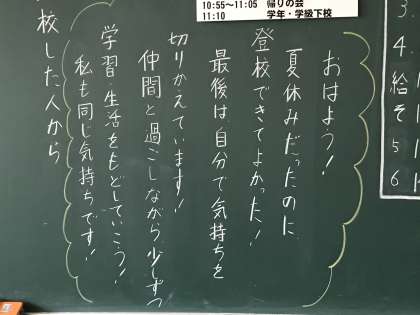 10:55～11:05 帰りの会
11:10 学年・学級下校
3
4
給
そ
5
6
おはよう!
夏休みだったのに
登校できてよかった!
最後は自分で気持ちを
切りかえています!
仲間と過ごしながら少しずつ
学習・生活をもどしていこう!
私も同じ気持ちです!
校した人から